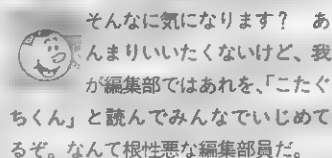 そんなに気になります？　あ
んまりいいたくないけど、我
が編集部ではあれを、「こたぐ
ちくん」と読んでみんなでいじめて
るぞ。なんて根性悪な編集部員だ。